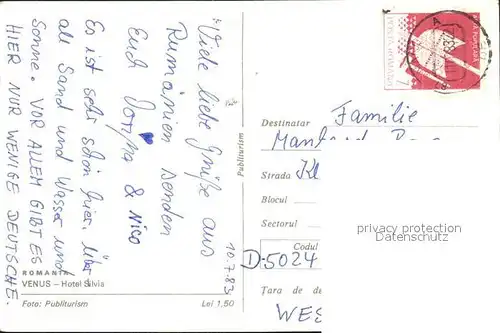 *Viele liebe Grüße aus
Rumänien senden
Euch Dorina & Nico
Es ist sehr schön hier, überall
Sand und Wasser und
Sonne. VOR ALLEM GIBT ES
HIER NUR WENIGE DEUTSCHE.
10.7.83
ROMANIA
VENUS – Hotel Silvia
Foto: Publiturism
Lei 1,50
Publiturism
Destinatar Familie
Strada Kl
Blocul
Sectorul
Codul
D-5024
Țara de de
WES
privacy protection
Datenschutz